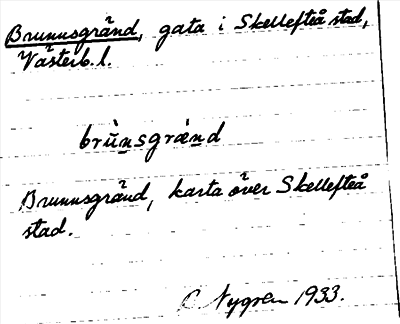 Brunnsgränd, gata i Skellefteå stad,
Västerb. l.
brùnsgræ̀nd
Brunnsgränd, karta över Skellefteå
stad.
C Nygren 1933.